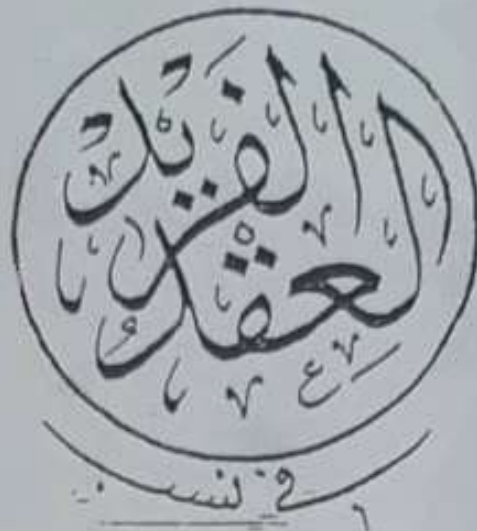 العقد الفريد
في نسب